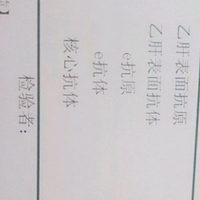 乙肝表面抗原
乙肝表面抗体
e抗原
e抗体
核心抗体
检验者：